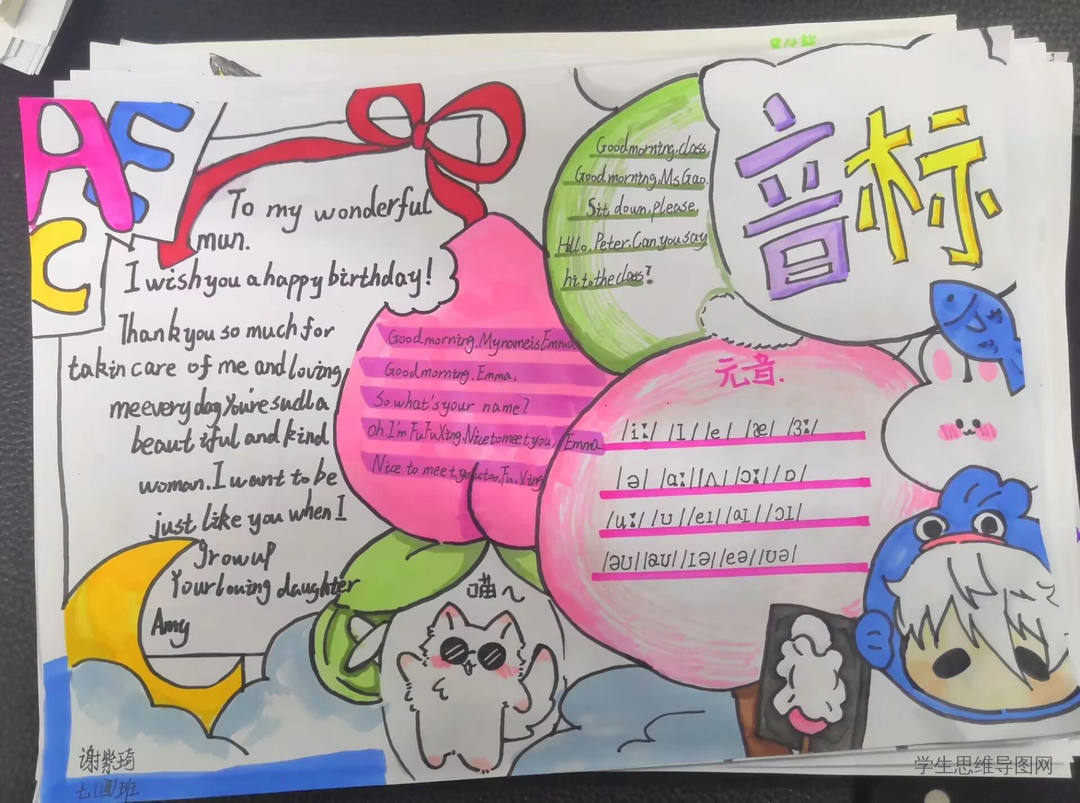 A E
C
To my wonderful
mun.
I wish you a happy birthday!
Thank you so much for
takin care of me and loving
me every dag You're sudl a
beaut iful and kind
woman. I want to be
just like you when I
Grow up
Your louing daughter
Amy
谢紫琦
七(四)班
Good morning. My name is Emma
Good morning. Emma.
So what's your name?
oh I'm Fu Fu Xing. Nice to meet you, Emma
Nice to meet you too. Fu. Xing
喵~
Good morning. class.
Good morning. Ms Gao.
Sit down, please.
Hello. Peter. Can you say
hi to the class?
音标
元音.
/iː/ /I/ /e/ /æ/ /ɜː/
/ə/ /ɑː/ /ʌ/ /ɔː/ /ɒ/
/uː/ /ʊ/ /eɪ/ /aɪ/ /ɔɪ/
/əʊ/ /aʊ/ /ɪə/ /eə/ /ʊə/
学生思维导图网